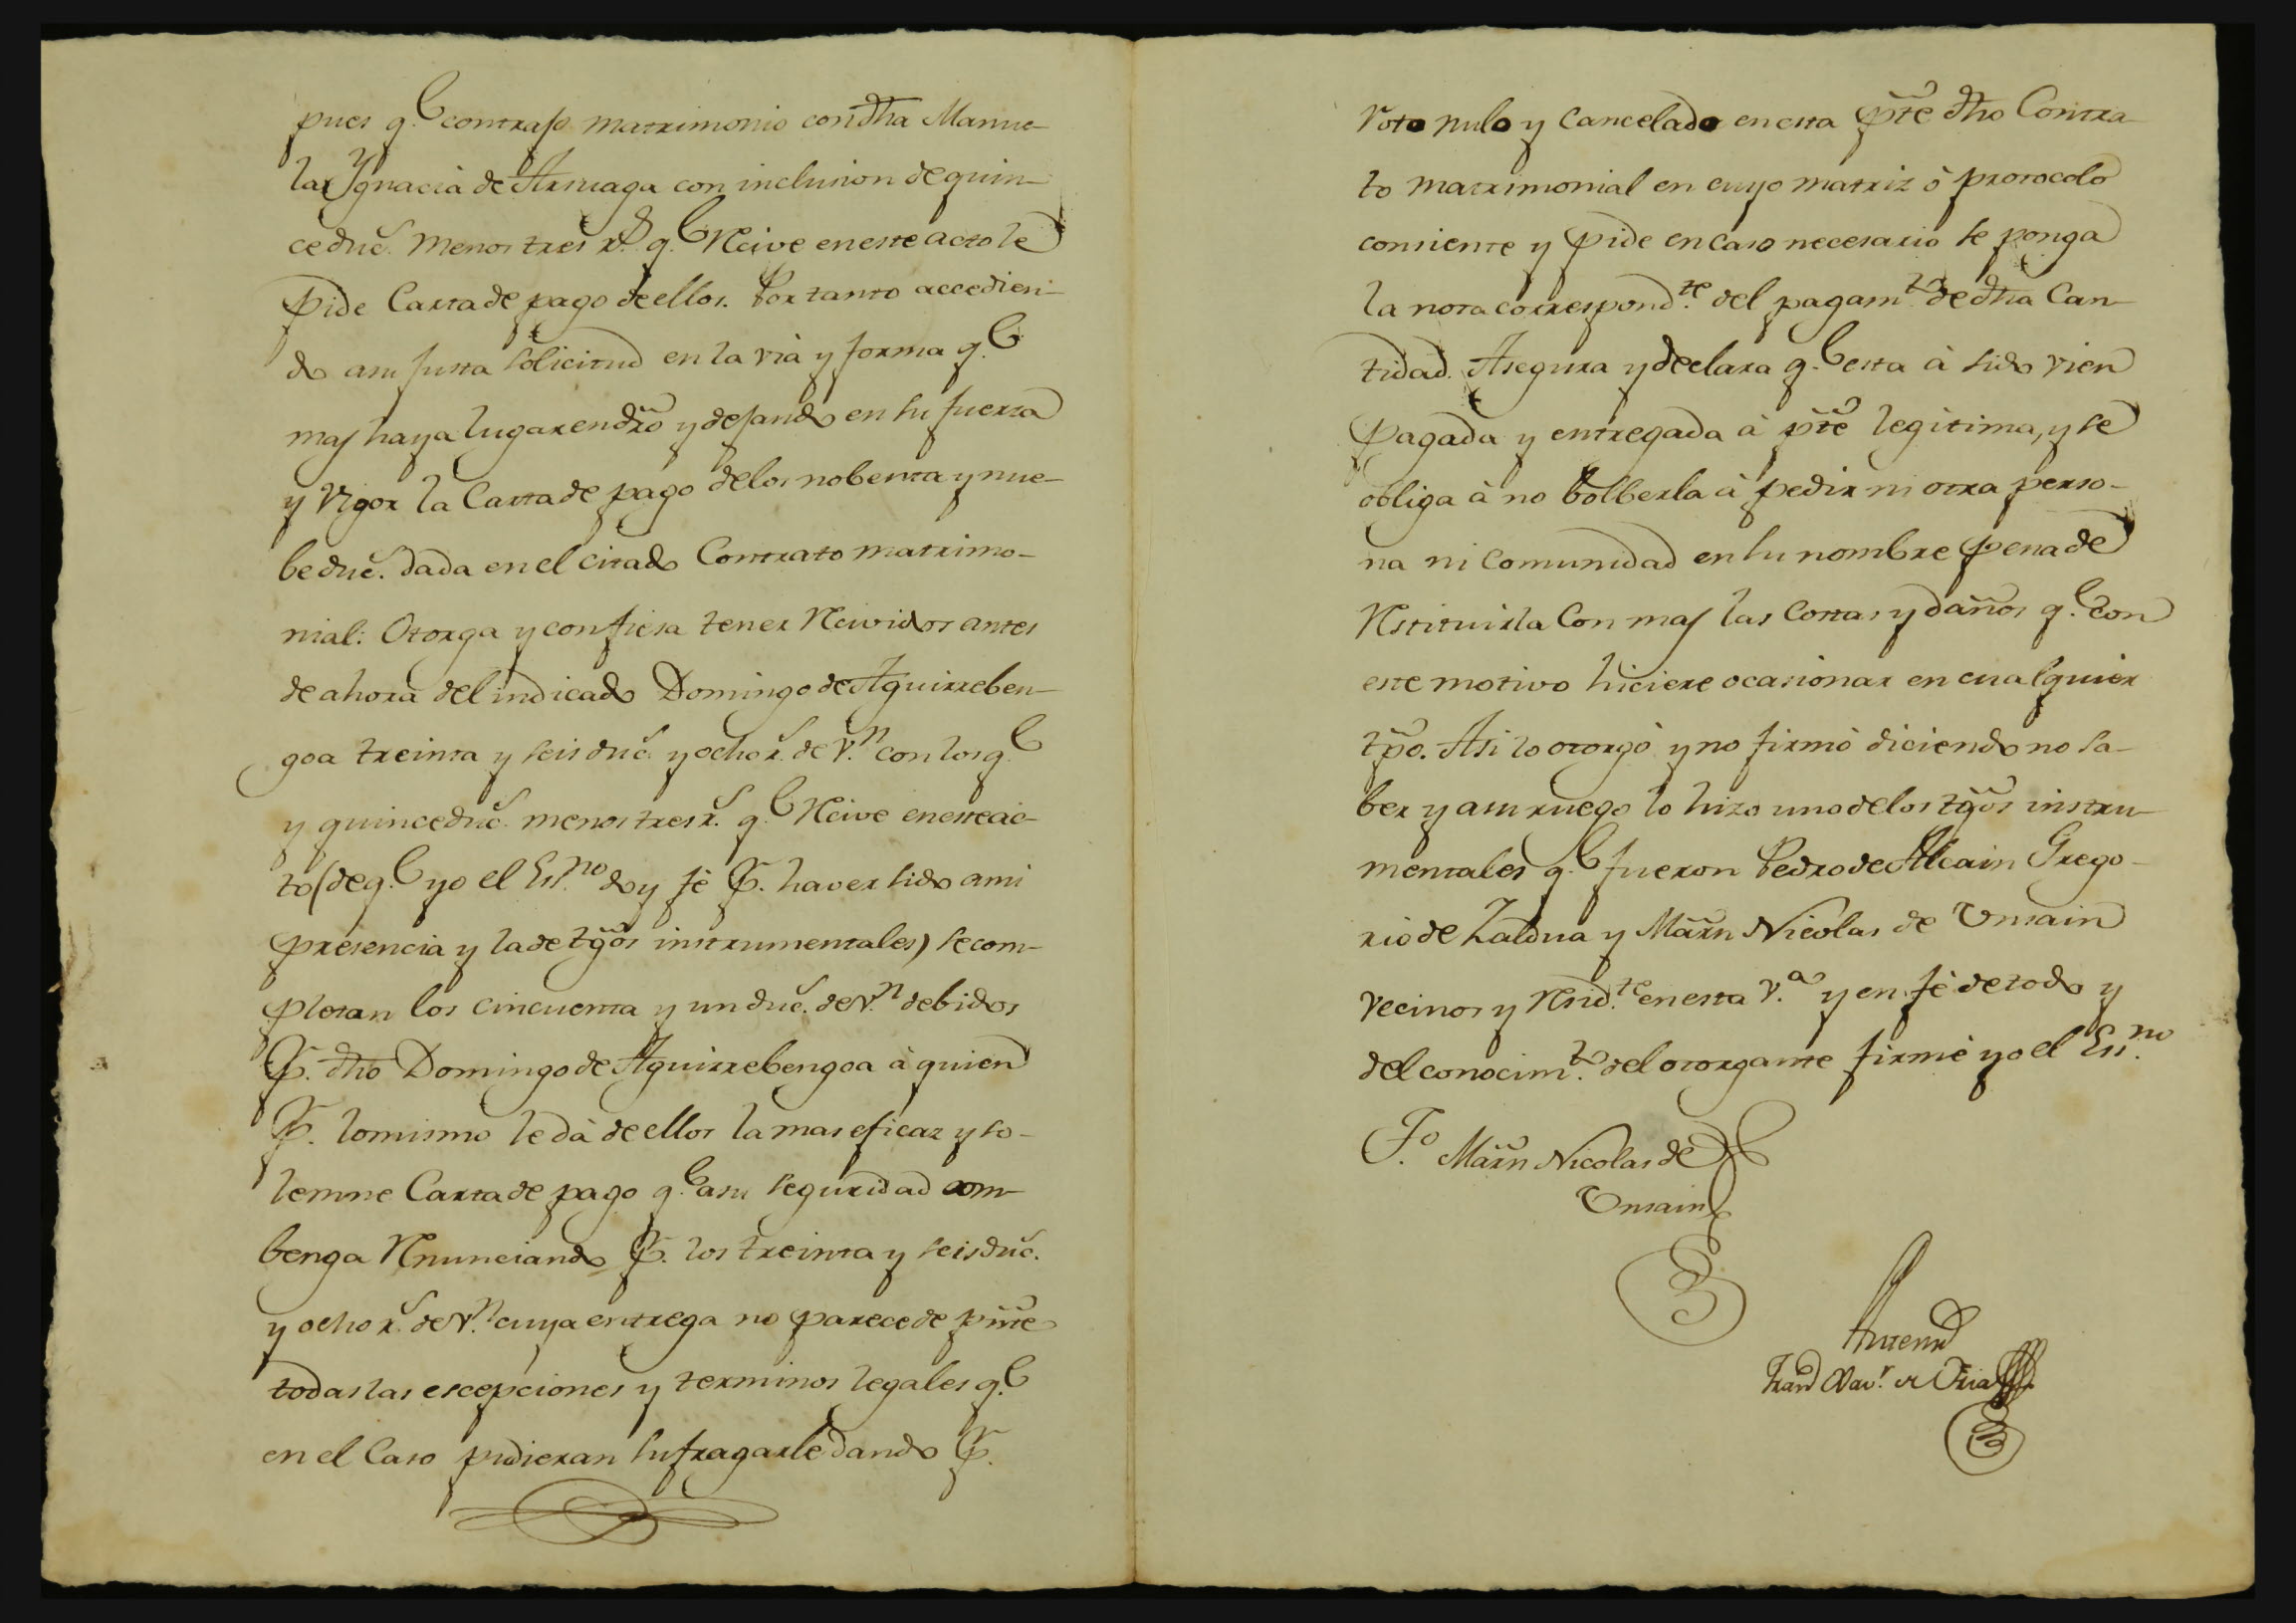 pues q.e contrajo matrimonio con dha Manue-
la Ygnacia de Arruaga con inclusion de quin-
ce duc.s menos tres r.s q.e Recive en este acto le
pide Carta de pago de ellos. Por tanto accedien-
do a su justa solicitud en la via y forma q.e
mas haya lugar en dro y dejando en su fuerza
y Vigor la Carta de pago delos nobenta y nue-
be duc.s dada en el citado Contrato matrimo-
nial: Otorga y confiesa tener Recividos antes
de ahora del indicado Domingo de Aguirreben-
goa treinta y seis duc.s y ocho r.s de v.n con los q.e
y quince duc.s menos tres r.s q.e Recive en este ac-
to (de q.e yo el Ess.no doy fé p.r haver sido a mi
presencia y la de tgos instrumentales) se com-
pletan los cincuenta y un duc.s de v.n debidos
p.r dho Domingo de Aguirrebengoa à quien
p.r lo mismo le dà de ellos la mas eficaz y so-
lemne Carta de pago q.e a su seguridad com-
benga Renunciando p.r los treinta y seis duc.s
y ocho r.s de v.n cuya entrega no parece de pnte
todas las escepciones y terminos legales q.e
en el Caso pudieran sufragarle dando p.r
roto nulo y Cancelado en esta pte dho Contra-
to matrimonial en cuyo matriz ò protocolo
consiente y pide en caso necesario se ponga
la nota correspond.te del pagam.to de dha Can-
tidad. Asegura y declara q.e esta à sido vien
pagada y entregada à pte legitima, y se
obliga à no bolberla à pedir ni otra perso-
na ni Comunidad en su nombre pena de
Restituirla Con mas las Costas y daños q.e con
este motivo hiciere ocasionar en cualquier
tpo. Asi lo otorgò y no firmò diciendo no sa-
ber y a su ruego lo hizo uno de los tgos instru-
mentales q.e fueron Pedro de Alcain Grego-
rio de Zaldua y Marn Nicolas de Unsain
vecinos y Resid.te en esta v.a y en fé de todo y
del conocim.to del otorgante firmé yo el Ess.no
T.o Marn Nicolas de
Unsain
Antemi